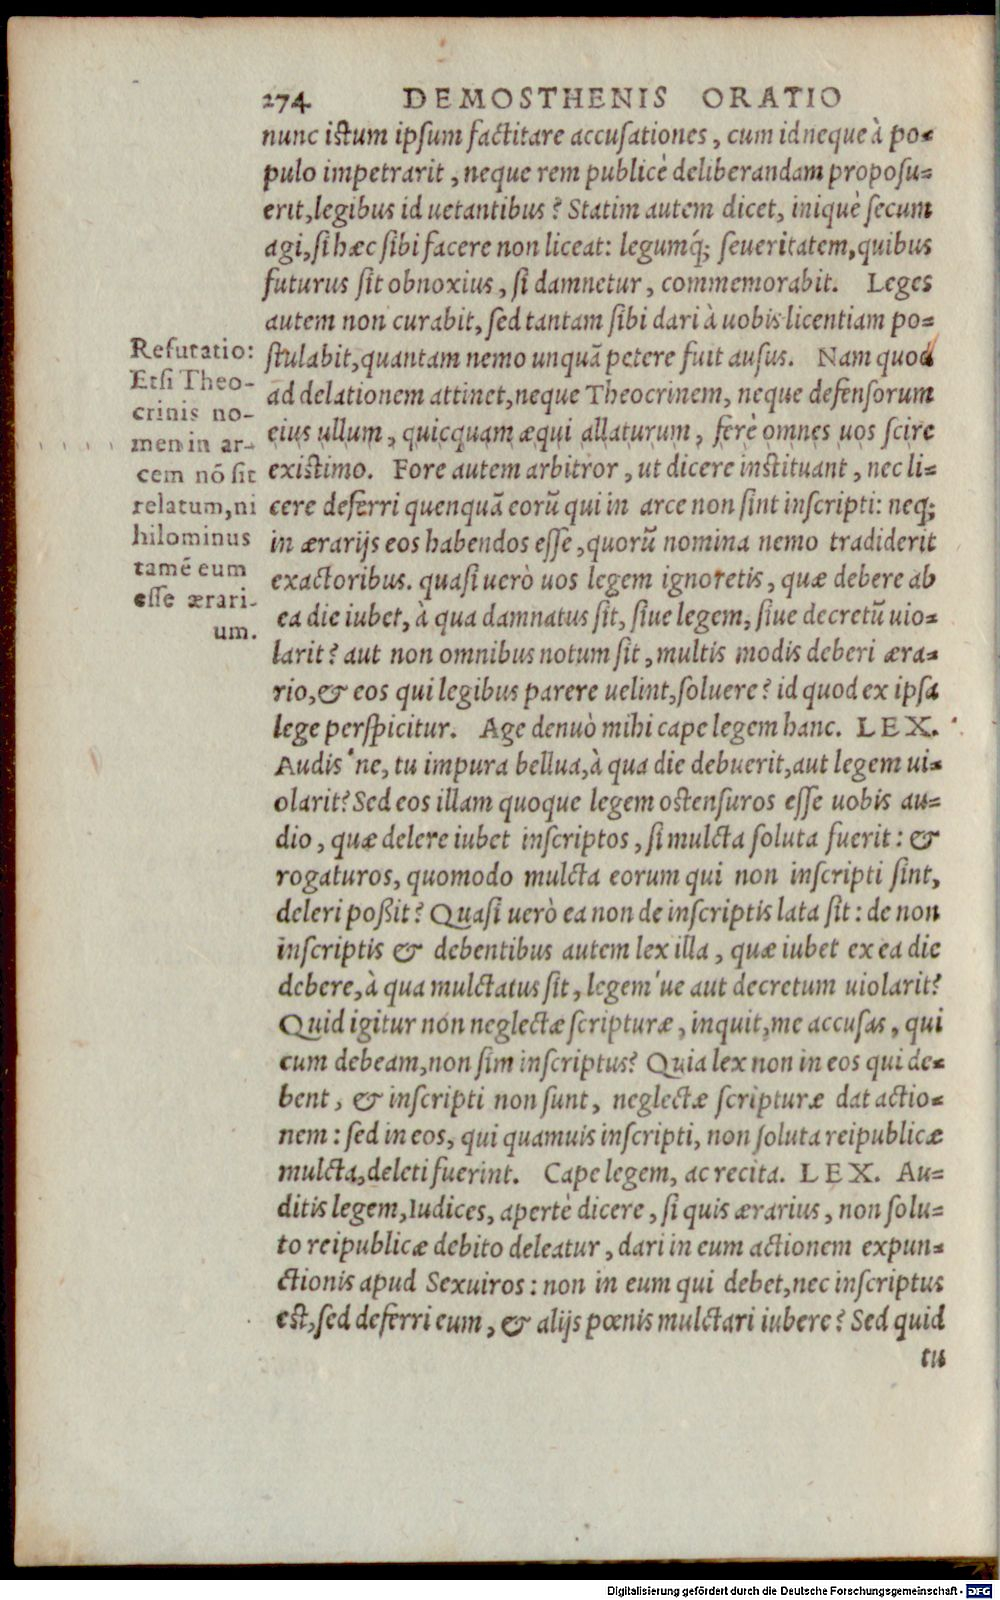 274 DEMOSTHENIS ORATIO
nunc istum ipsum factitare accusationes, cum id neque à po-
pulo impetrarit, neque rem publicè deliberandam proposu-
erit, legibus id uetantibus? Statim autem dicet, iniquè secum
agi, si hæc sibi facere non liceat: legumq́; seueritatem, quibus
futurus sit obnoxius, si damnetur, commemorabit. Leges
autem non curabit, sed tantam sibi dari à uobis licentiam po-
stulabit, quantam nemo unquã petere fuit ausus. Nam quod
ad delationem attinet, neque Theocrinem, neque defensorum
eius ullum, quicquam æqui allaturum, ferè omnes uos scire
existimo. Fore autem arbitror, ut dicere instituant, nec li-
cere deferri quenquã eorũ qui in arce non sint inscripti: neq;
in ærarijs eos habendos esse, quorũ nomina nemo tradiderit
exactoribus. quasi uerò uos legem ignoretis, quæ debere ab
ea die iubet, à qua damnatus sit, siue legem, siue decretũ uio-
larit? aut non omnibus notum sit, multis modis deberi æra-
rio, & eos qui legibus parere uelint, soluere? id quod ex ipsa
lege perspicitur. Age denuò mihi cape legem hanc. LEX.
Audis'ne, tu impura bellua, à qua die debuerit, aut legem ui-
olarit? Sed eos illam quoque legem ostensuros esse uobis au-
dio, quæ delere iubet inscriptos, si mulcta soluta fuerit: &
rogaturos, quomodo mulcta eorum qui non inscripti sint,
deleri poßit? Quasi uerò ea non de inscriptis lata sit: de non
inscriptis & debentibus autem lex illa, quæ iubet ex ea die
debere, à qua mulctatus sit, legem'ue aut decretum uiolarit?
Quid igitur non neglectæ scripturæ, inquit, me accusas, qui
cum debeam, non sim inscriptus? Quia lex non in eos qui de-
bent, & inscripti non sunt, neglectæ scripturæ dat actio-
nem: sed in eos, qui quamuis inscripti, non soluta reipublicæ
mulcta, deleti fuerint. Cape legem, ac recita. LEX. Au-
ditis legem, Iudices, apertè dicere, si quis ærarius, non solu-
to reipublicæ debito deleatur, dari in eum actionem expun-
ctionis apud Sexuiros: non in eum qui debet, nec inscriptus
est, sed deferri eum, & alijs pœnis mulctari iubere? Sed quid
tu
Refutatio:
Etsi Theo-
crinis no-
men in ar-
cem nõ sit
relatum, ni
hilominus
tamẽ eum
esse ærari-
um.
Digitalisierung gefördert durch die Deutsche Forschungsgemeinschaft - DFG